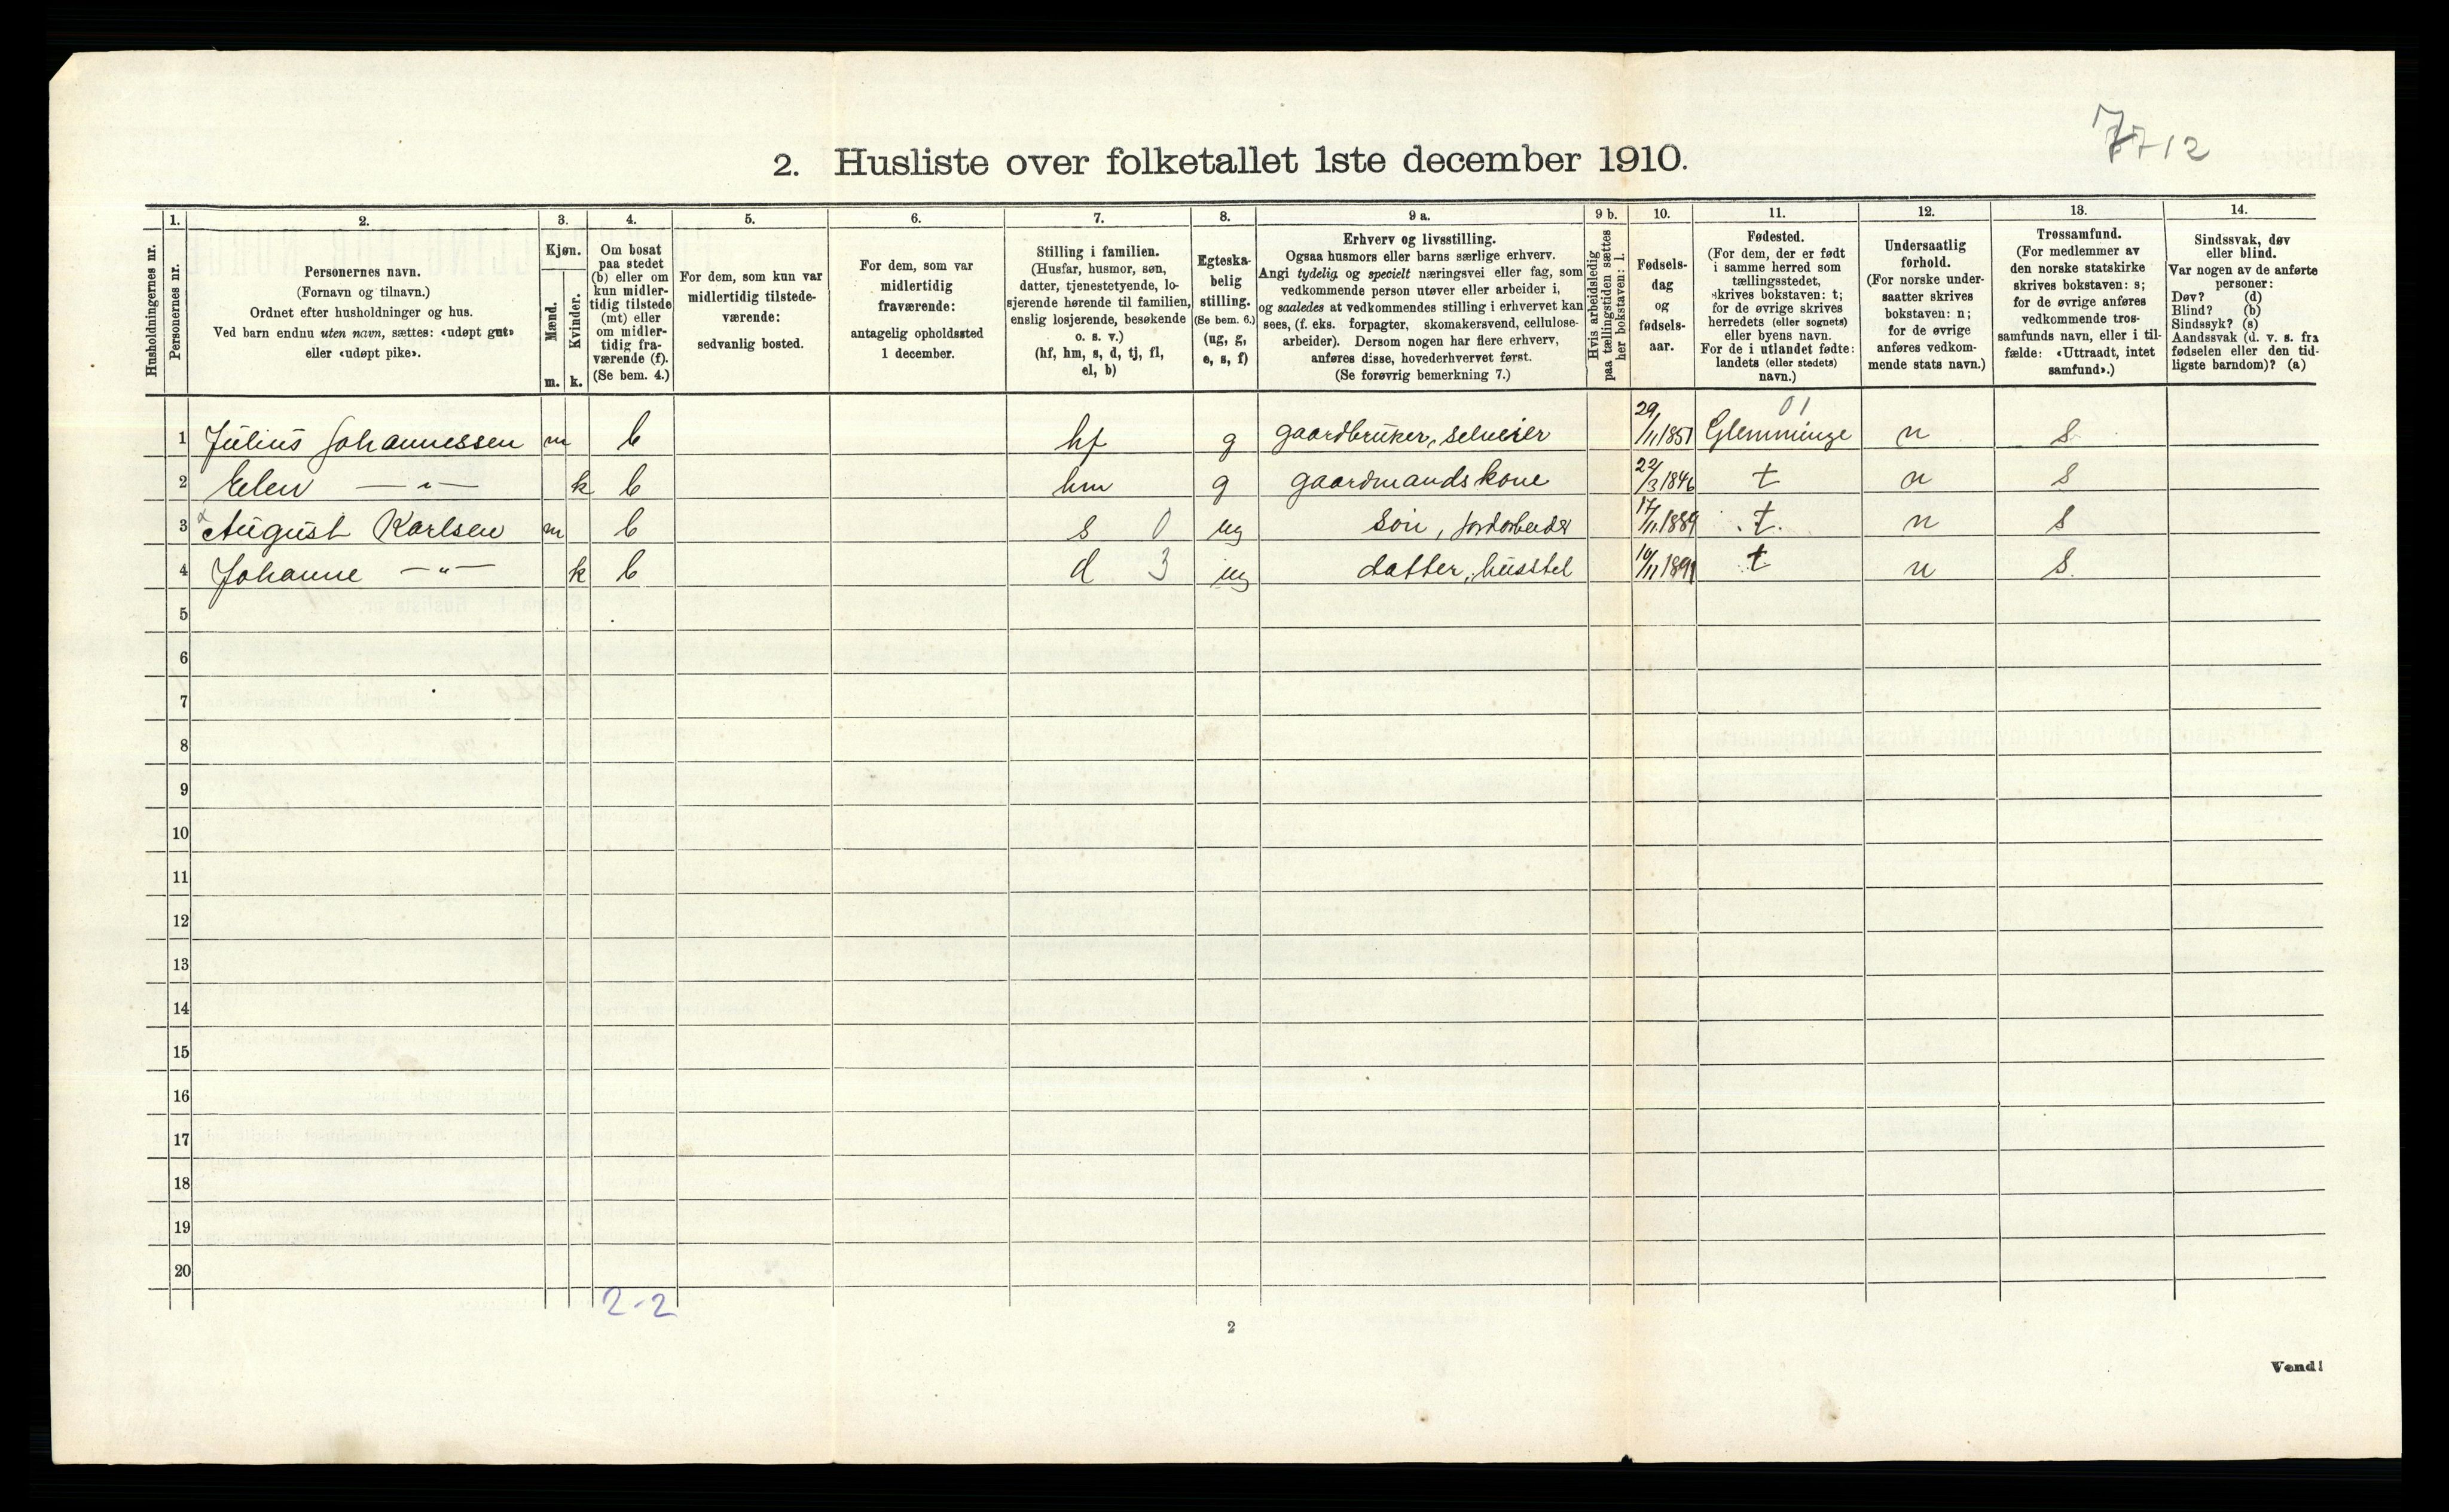 7712
2. Husliste over folketallet 1ste december 1910.
1. 2. 3. 4. 5. 6. 7. 8. 9 a. 9 b. 10. 11. 12. 13. 14.
Husholdningernes nr.
Personernes nr.
Personernes navn.
(Fornavn og tilnavn.)
Ordnet efter husholdninger og hus.
Ved barn endnu uten navn, sættes: «udøpt gut»
eller «udøpt pike».
Kjøn.
Mænd.
Kvinder.
m. k.
Om bosat
paa stedet
(b) eller om
kun midler-
tidig tilstede
(mt) eller
om midler-
tidig fra-
værende (f).
(Se bem. 4.)
For dem, som kun var
midlertidig tilstede-
værende:
sedvanlig bosted.
For dem, som var
midlertidig
fraværende:
antagelig opholdssted
1 december.
Stilling i familien.
(Husfar, husmor, søn,
datter, tjenestetyende, lo-
sjerende hørende til familien,
enslig losjerende, besøkende
o. s. v.)
(hf, hm, s, d, tj, fl,
el, b)
Egteska-
belig
stilling.
(Se bem. 6.)
(ug, g,
e, s, f)
Erhverv og livsstilling.
Ogsaa husmors eller barns særlige erhverv.
Angi tydelig og specielt næringsvei eller fag, som
vedkommende person utøver eller arbeider i,
og saaledes at vedkommendes stilling i erhvervet kan
sees, (f. eks. forpagter, skomakersvend, cellulose-
arbeider). Dersom nogen har flere erhverv,
anføres disse, hovederhvervet først.
(Se forøvrig bemerkning 7.)
Hvis arbeidsledig
paa tællingstiden sættes
her bokstaven: l.
Fødsels-
dag
og
fødsels-
aar.
Fødested.
(For dem, der er født
i samme herred som
tællingsstedet,
skrives bokstaven: t;
for de øvrige skrives
herredets (eller sognets)
eller byens navn.
For de i utlandet fødte:
landets (eller stedets)
navn.)
Undersaatlig
forhold.
(For norske under-
saatter skrives
bokstaven: n;
for de øvrige
anføres vedkom-
mende stats navn.)
Trossamfund.
(For medlemmer av
den norske statskirke
skrives bokstaven: s;
for de øvrige anføres
vedkommende tros-
samfunds navn, eller i til-
fælde: «Uttraadt, intet
samfund».)
Sindssvak, døv
eller blind.
Var nogen av de anførte
personer:
Døv? (d)
Blind? (b)
Sindssyk? (s)
Aandssvak (d. v. s. fra
fødselen eller den tid-
ligste barndom)? (a)
01
1 Julius Johannessen m b hf g gaardbruker, selveier 29/11 1851 Glemminge n s
2 Elen —"— k b hm g gaardmandskone 22/3 1846 t n s
3 August Karlsen m b s 0 ug søn, jordarbeider 17/11 1889 t n s
4 Johanne —"— k b d 3 ug datter, husstel 10/11 1891 t n s
5
6
7
8
9
10
11
12
13
14
15
16
17
18
19
20
2-2
2
Vend!